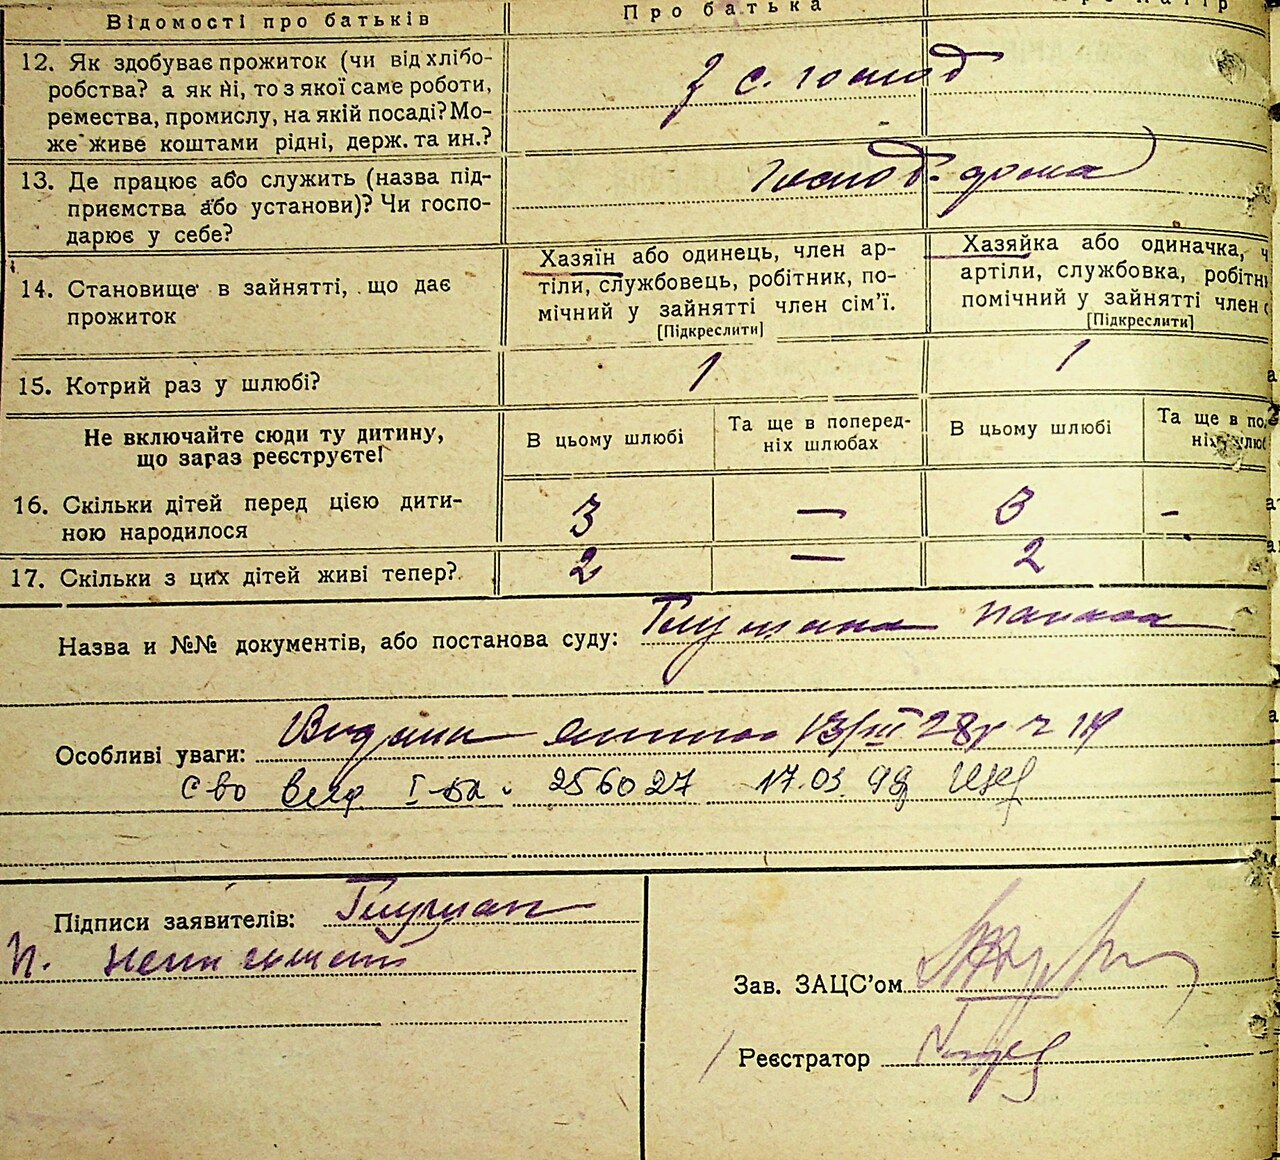 Відомості про батьків
Про батька
12. Як здобуває прожиток (чи від хлібо-
робства? а як ні, то з якої саме роботи,
ремества, промислу, на якій посаді? Мо-
же живе коштами рідні, держ. та ин.?
з с. господ
13. Де працює або служить (назва під-
приємства або установи)? Чи госпо-
дарює у себе?
Господ. дома
14. Становище в зайнятті, що дає
прожиток
Хазяїн або одинець, член ар-
тіли, службовець, робітник, по-
мічний у зайнятті член сім'ї.
[Підкреслити]
Хазяйка або одиначка, ч
артіли, службовка, робітн
помічний у зайнятті член
[Підкреслити]
15. Котрий раз у шлюбі?
1
1
Не включайте сюди ту дитину,
що зараз реєструєте!
В цьому шлюбі
Та ще в поперед-
ніх шлюбах
В цьому шлюбі
Та ще в по
ніх шлюб
16. Скільки дітей перед цією дити-
ною народилося
3 — 3 -
17. Скільки з цих дітей живі тепер?
2 — 2
Назва и №№ документів, або постанова суду:
Особливі уваги: 13/III 28р ч 14
с-во 256027 17.03.
Підписи заявителів:
Зав. ЗАЦС'ом
Реєстратор